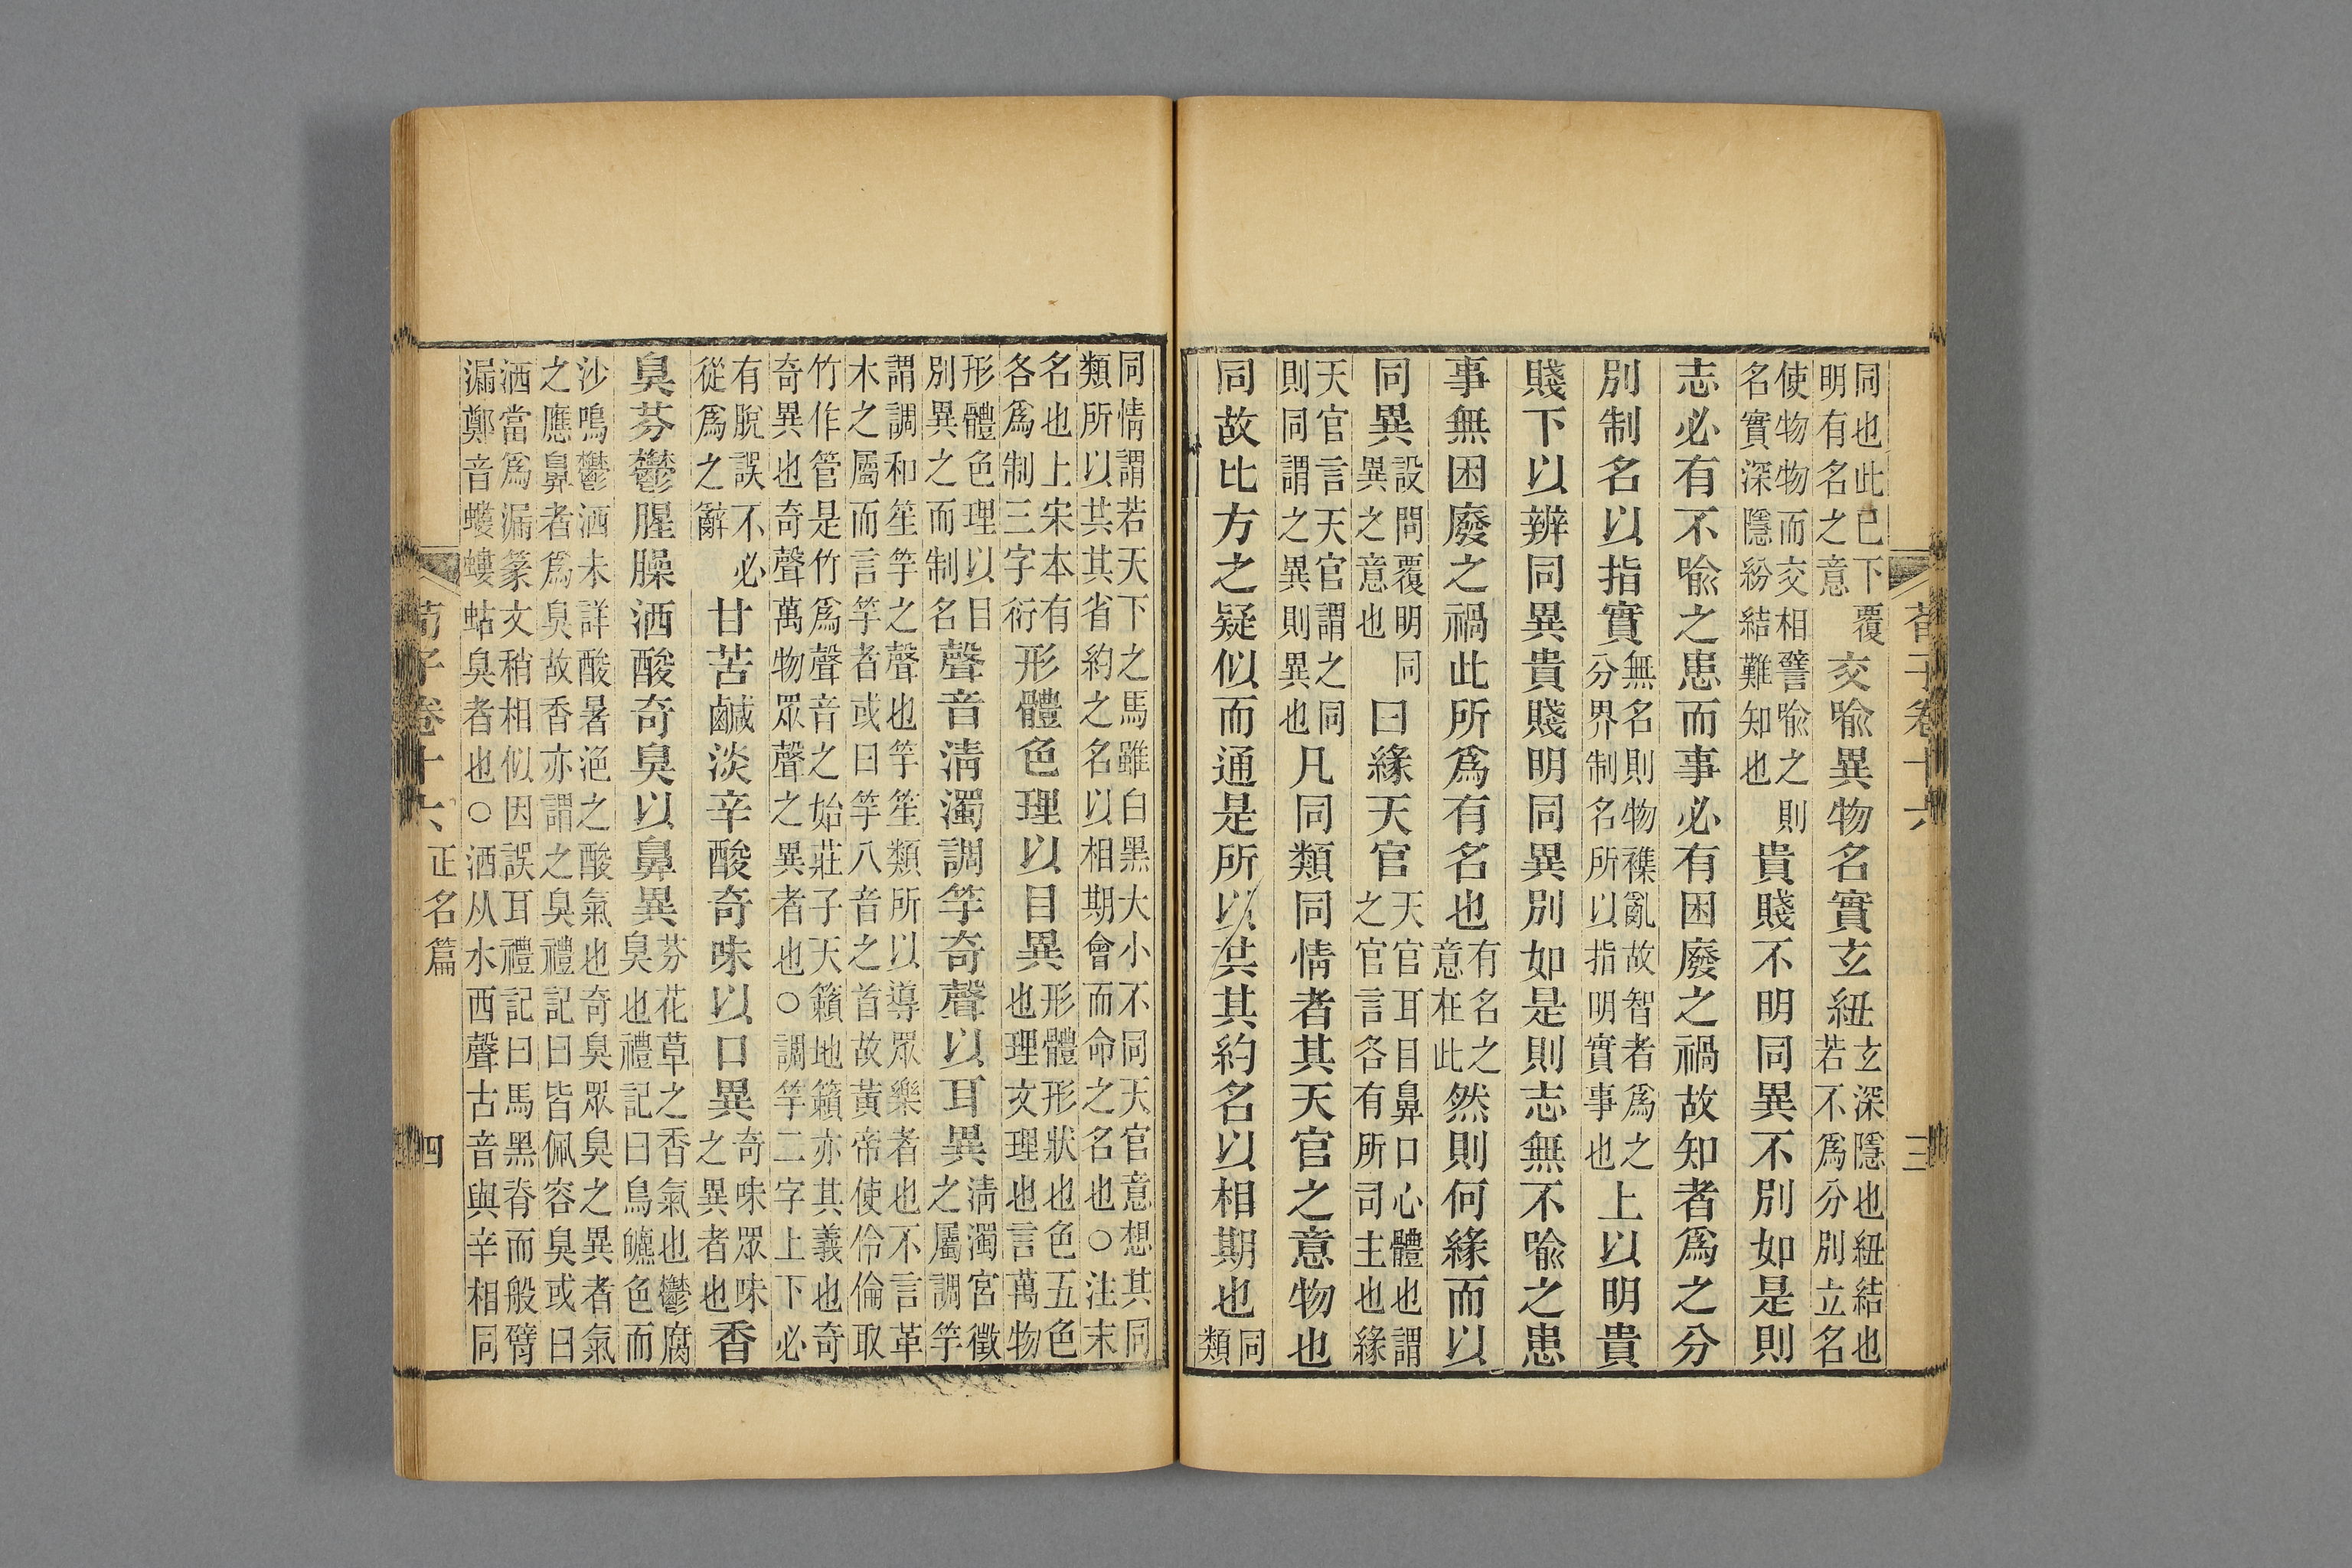 同也此已下覆
明有名之意
交喩異物名實玄紐
玄深隱也紐結也
若不爲分別立名
使物物而交相譬喩之則
名實深隱紛結難知也
貴賤不明同異不別如是則
志必有不喩之患而事必有困廢之禍故知者爲之分
別制名以指實
無名則物襍亂故智者爲之
分界制名所以指明實事也
上以明貴
賤下以辨同異貴賤明同異別如是則志無不喩之患
事無困廢之禍此所爲有名也
有名之
意在此
然則何緣而以
同異
設問覆明同
異之意也
曰緣天官
天官耳目鼻口心體也謂
之官言各有所司主也緣
天官言天官謂之同
則同謂之異則異也
凡同類同情者其天官之意物也
同故比方之疑似而通是所以共其約名以相期也
同
類
同情謂若天下之馬雖白黑大小不同天官意想其同
類所以其其省約之名以相期會而命之名也○注末
名也上宋本有
各爲制三字衍
形體色理以目異
形體形狀也色五色
也理文理也言萬物
形體色理以目
別異之而制名
聲音淸濁調竽奇聲以耳異
淸濁宮徵
之屬調竽
謂調和笙竽之聲也竽笙類所以導眾樂者也不言革
木之屬而言竽者或曰竽八音之首故黃帝使伶倫取
竹作管是竹爲聲音之始莊子天籟地籟亦其義也奇
奇異也奇聲萬物眾聲之異者也○調竽二字上下必
有脫誤不必
從爲之辭
甘苦鹹淡辛酸奇味以口異
奇味眾味
之異者也
香
臭芬鬱腥臊洒酸奇臭以鼻異
芬花草之香氣也鬱腐
臭也禮記曰鳥皫色而
沙鳴鬱洒未詳酸暑浥之酸氣也奇臭眾臭之異者氣
之應鼻者爲臭故香亦謂之臭禮記曰皆佩容臭或曰
洒當爲漏篆文稍相似因誤耳禮記曰馬黑脊而般臂
漏鄭音螻螻蛄臭者也○洒从水西聲古音與辛相同
荀子卷十六
正名篇
四
荀子卷十六
三